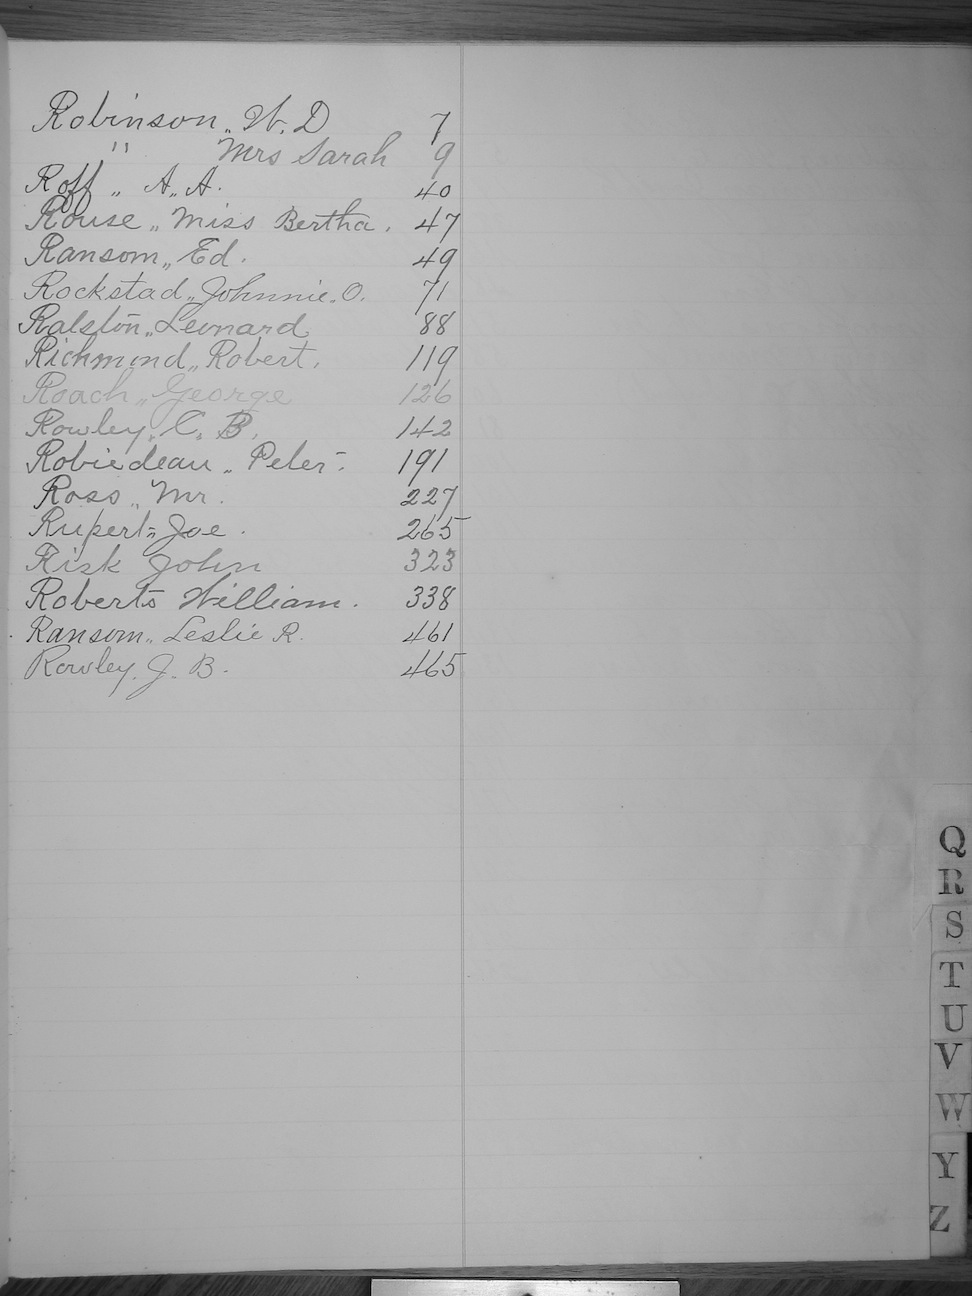 Robinson,, W. D 7
" Mrs Sarah 9
Roff,, A,. A. 40
Rouse,, Miss Bertha. 47
Ransom,, Ed. 49
Rockstad,, Johnnie,. O. 71
Ralston,, Leonard 88
Richmond,, Robert. 119
Roach,, George 126
Rowley,. C,. B. 142
Robiedeau,, Peter. 191
Ross,, Mr. 227
Rupert,, Joe. 265
Risk John 323
Roberts William. 338
Ransom,, Leslie R. 461
Rowley. J. B. 465
Q
R
S
T
U
V
W
Y
Z